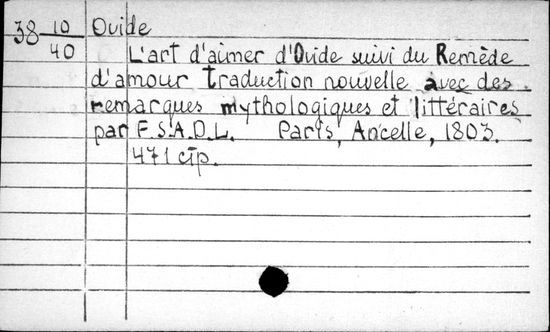 38 10/40 Ovide
L'art d'aimer d'Ovide suivi du Remède
d'amour traduction nouvelle avec des
remarques mythologiques et littéraires
par F.S.A.D.L. Paris, Ancelle, 1803.
471 стр.